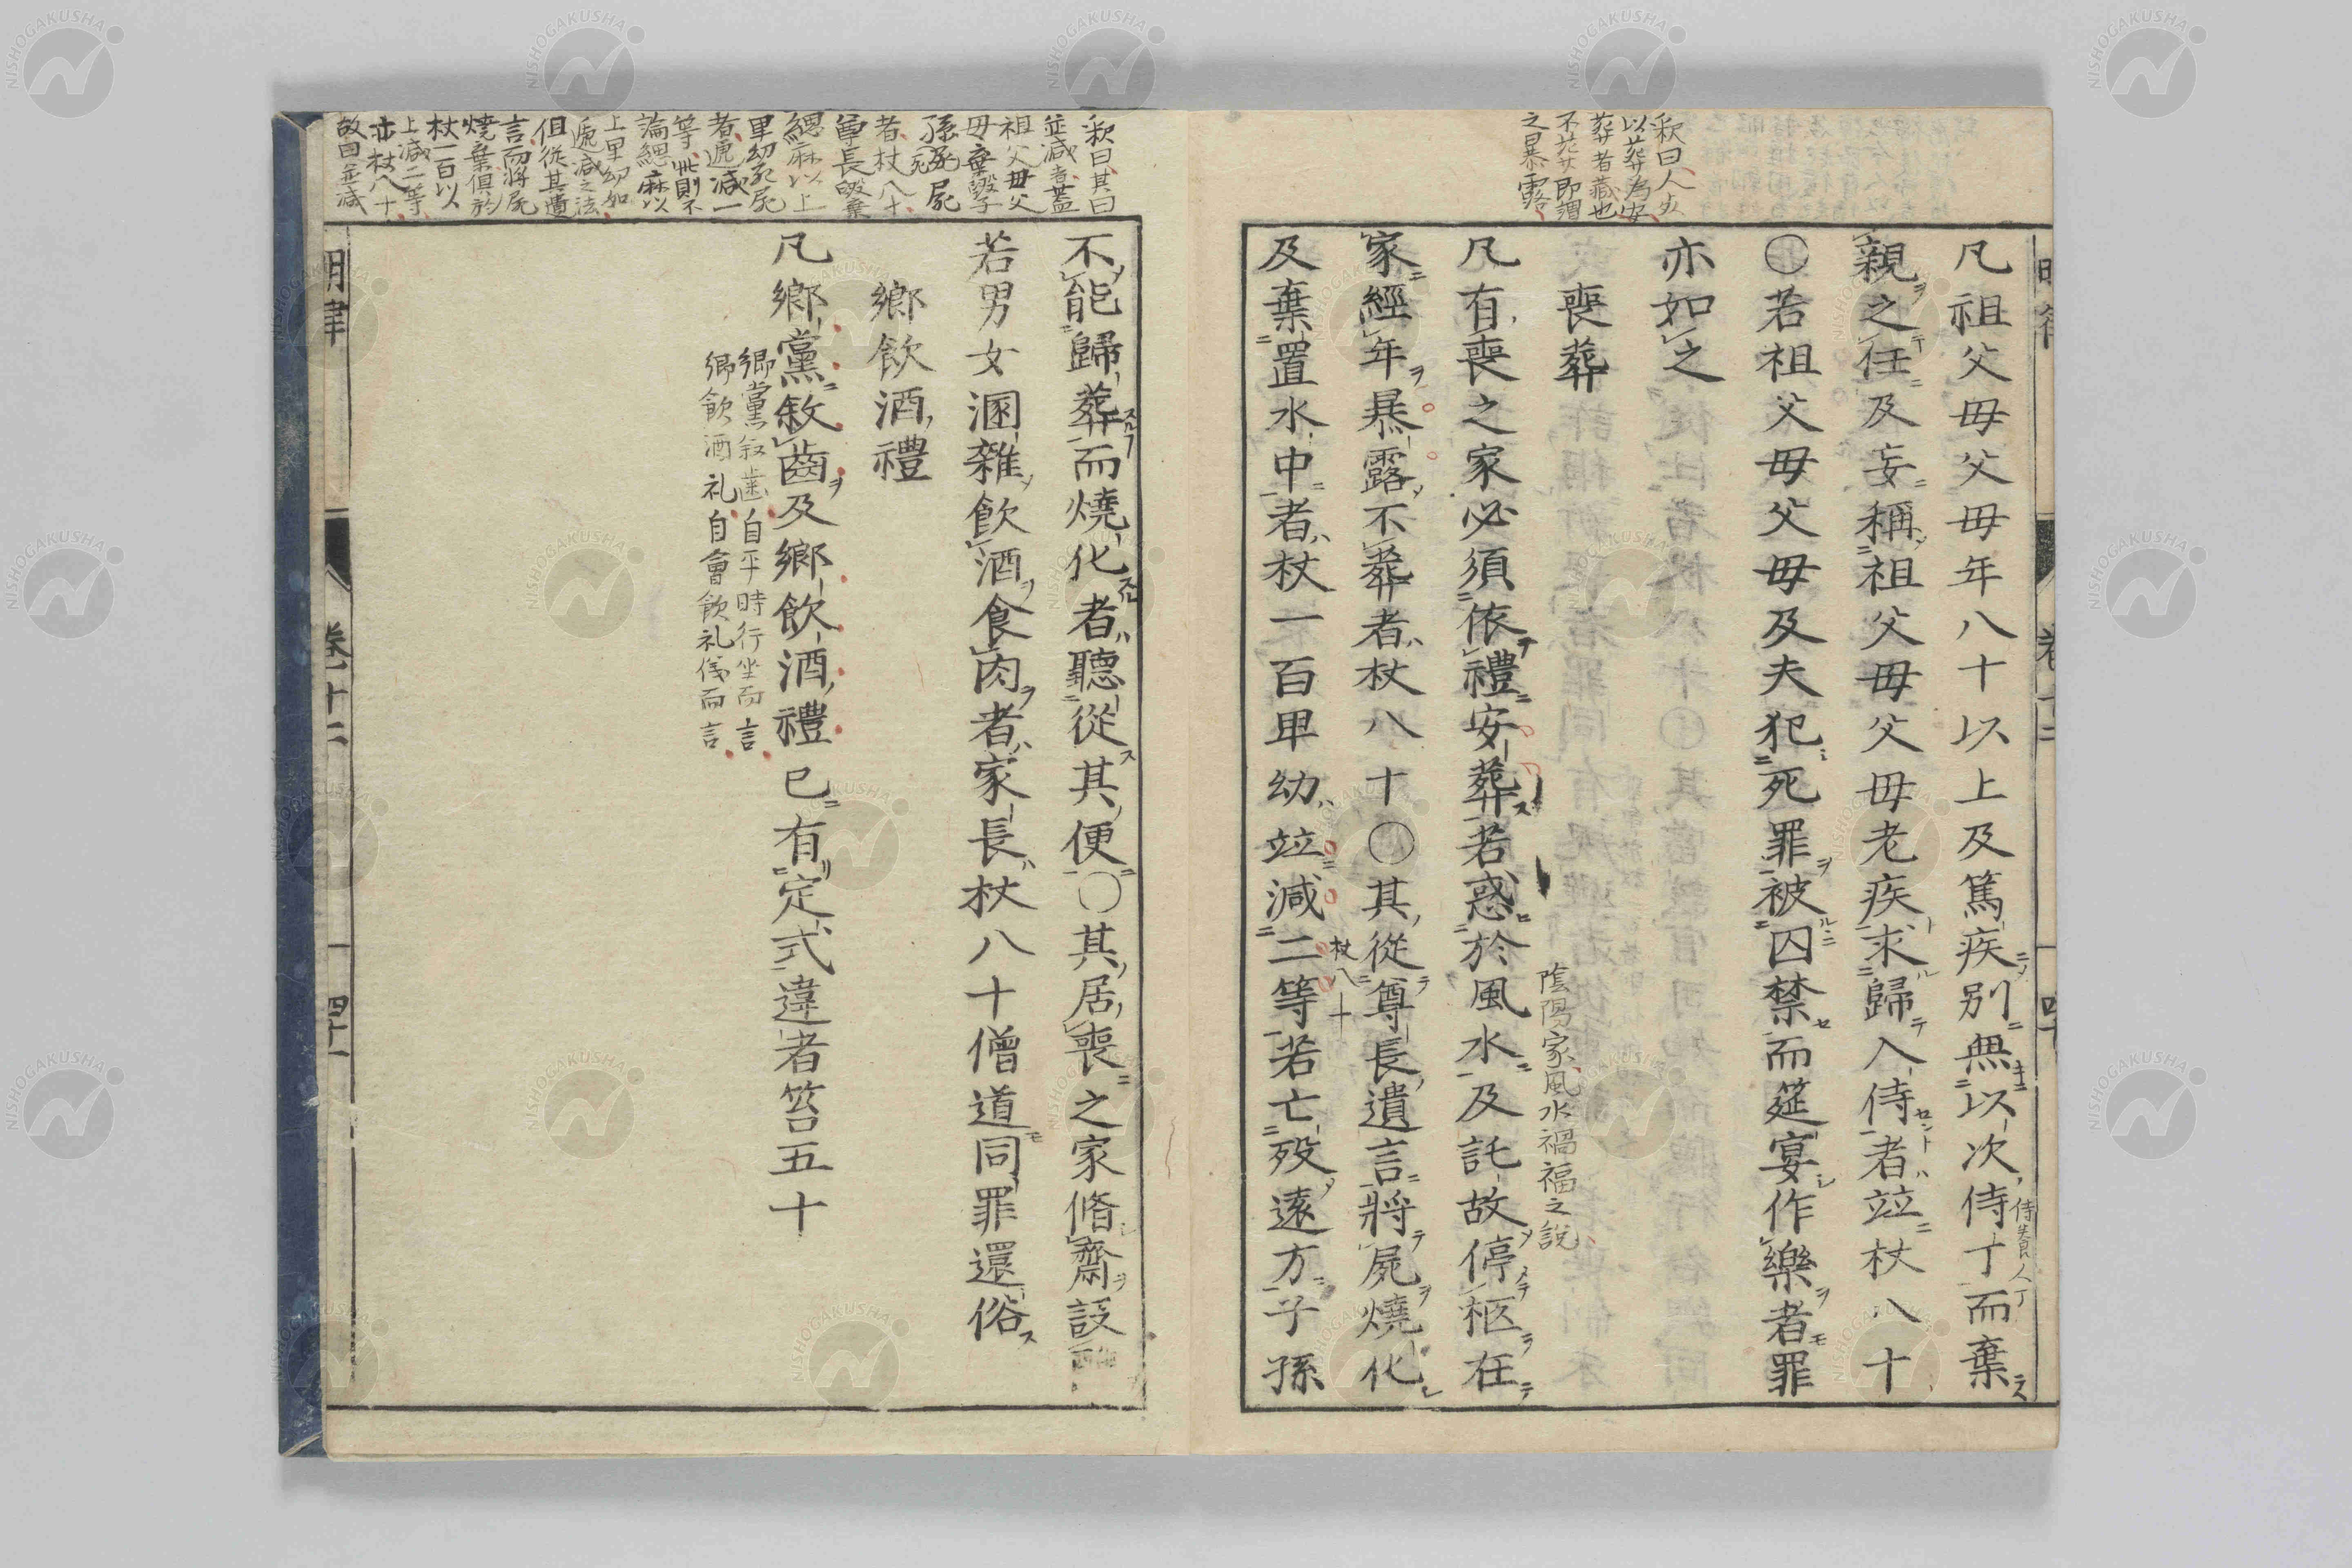 釈曰人死
以葬為安
葬者藏也
不葬即謂
之暴露
凡祖父母父母年八十以上及篤疾別無以次侍丁而棄
侍養人丁
親之任及妄稱祖父母父母老疾求歸入侍者竝杖八十
○若祖父母父母及夫犯死罪被囚禁而筵宴作樂者罪
亦如之
喪葬
凡有喪之家必須依禮安葬若惑於風水及託故停柩在
陰陽家風水禍福之說
家經年暴露不葬者杖八十○其從尊長遺言將屍燒化
杖八十
及棄置水中者杖一百卑幼竝減二等若亡歿遠方子孫
釈曰其曰
並減者蓋
祖父母父
母棄毀子
孫死屍
者杖八十
尊長毀棄
緦麻以上
卑幼死屍
者遞減一
等此則不
論緦麻以
上卑幼如
遞減之法
但從其遺
言而將屍
燒棄俱於
杖一百以
上減二等
亦杖八十
故曰並減
不能歸葬而燒化者聽從其便○其居喪之家脩齋設
若男女溷雜飲酒食肉者家長杖八十僧道同罪還俗
鄉飲酒禮
凡鄉黨敘齒及鄉飲酒禮已有定式違者笞五十
鄉黨叙歯自平時行坐而言
鄉飲酒礼自會飲礼儀而言
明律
卷十二
四十一